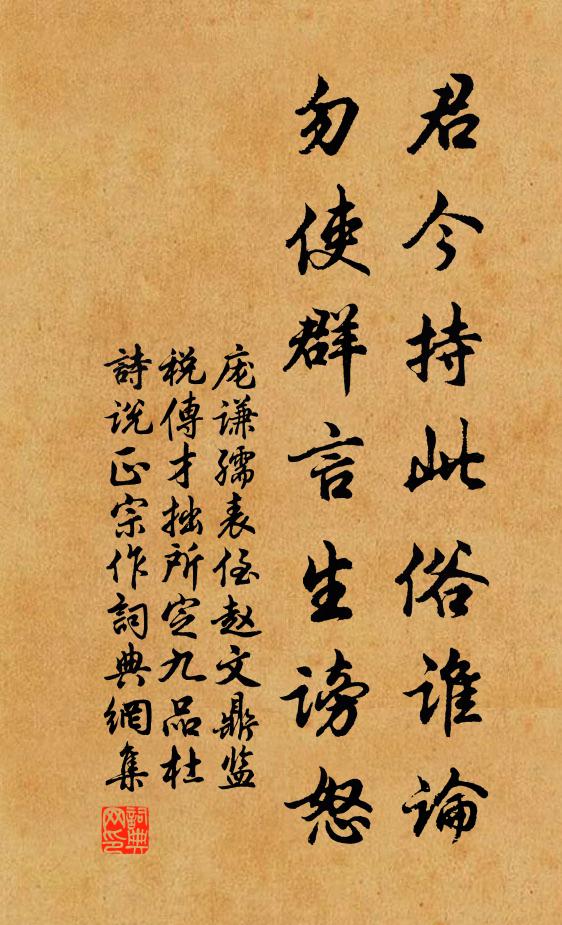 君今持此俗谁論
勿使群言生謗怒
庞谦孺表侄赵文鼎监
税傳才拙所定九品杜
詩说正宗作詞典網集
詞典网印